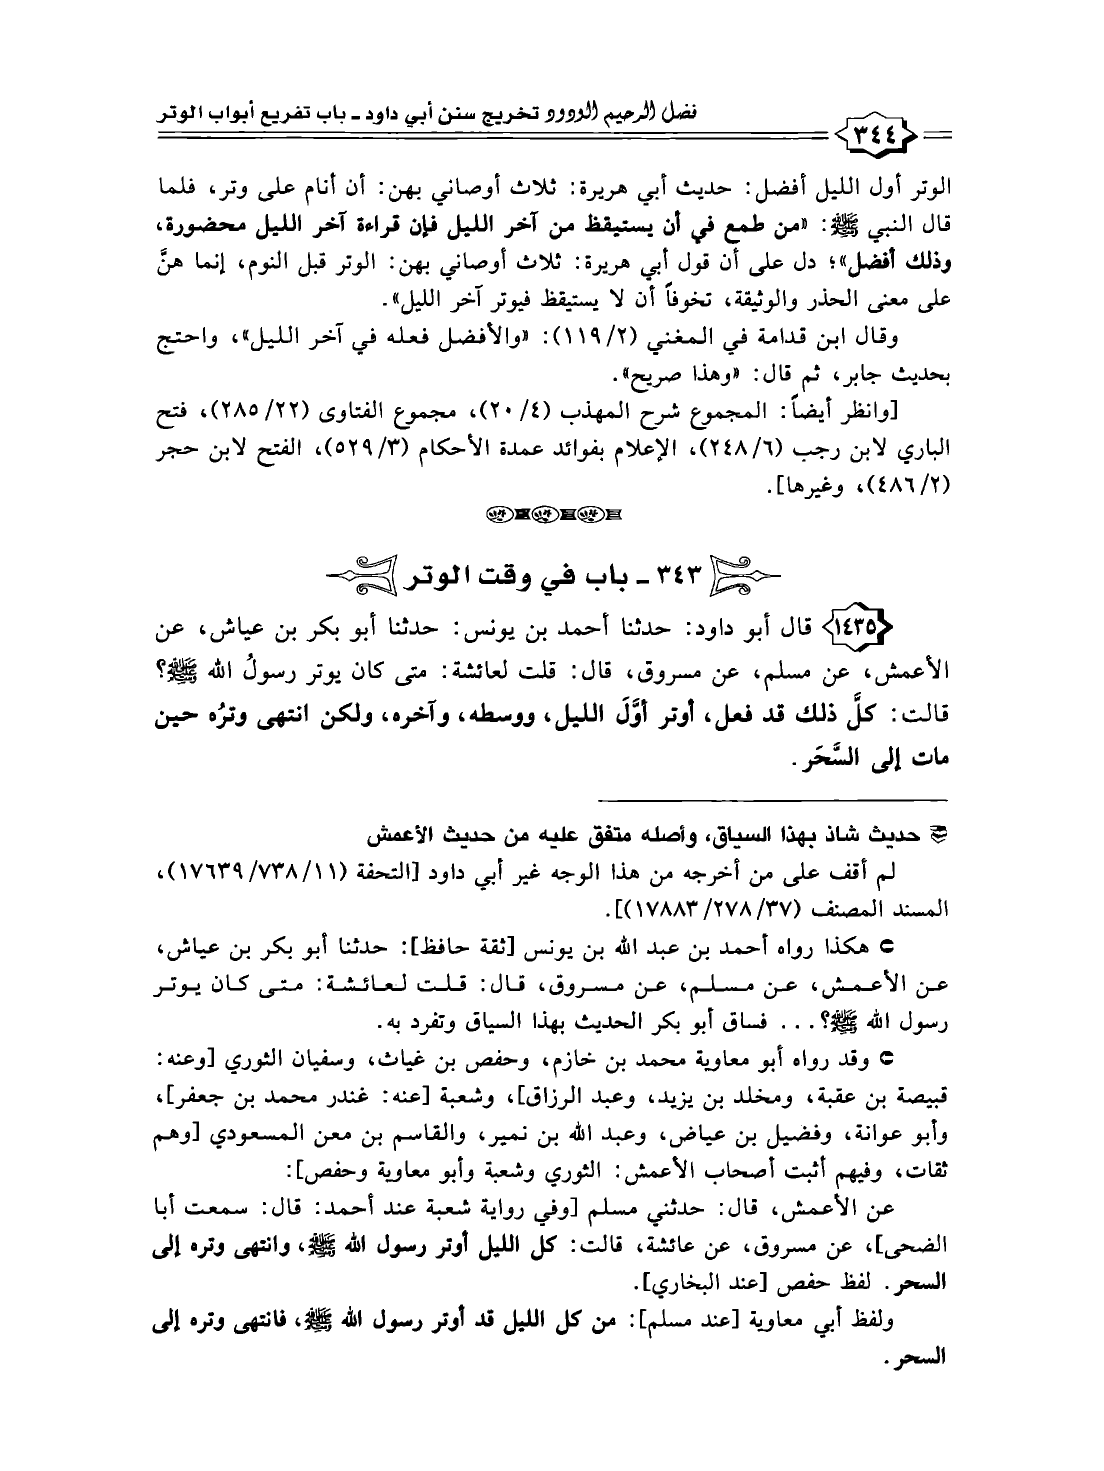 فضل الرحيم الودود تخريج سنن أبي داود ـ باب تفريع أبواب الوتر
٣٤٤
الوتر أول الليل أفضل: حديث أبي هريرة: ثلاث أوصاني بهن: أن أنام على وتر، فلما
قال النبي ﷺ: «من طمع في أن يستيقظ من آخر الليل فإن قراءة آخر الليل محضورة،
وذلك أفضل»؛ دل على أن قول أبي هريرة: ثلاث أوصاني بهن: الوتر قبل النوم، إنما هنَّ
على معنى الحذر والوثيقة، تخوفاً أن لا يستيقظ فيوتر آخر الليل».
وقال ابن قدامة في المغني (١١٩/٢): «والأفضل فعله في آخر الليل»، واحتج
بحديث جابر، ثم قال: «وهذا صريح».
[وانظر أيضاً: المجموع شرح المهذب (٢٠/٤)، مجموع الفتاوى (٢٨٥/٢٢)، فتح
الباري لابن رجب (٢٤٨/٦)، الإعلام بفوائد عمدة الأحكام (٥٢٩/٣)، الفتح لابن حجر
(٤٨٦/٢)، وغيرها].
٣٤٣ ـ باب في وقت الوتر
١٤٣٥ قال أبو داود: حدثنا أحمد بن يونس: حدثنا أبو بكر بن عياش، عن
الأعمش، عن مسلم، عن مسروق، قال: قلت لعائشة: متى كان يوتر رسولُ الله ﷺ؟
قالت: كلَّ ذلك قد فعل، أوتر أوَّلَ الليل، ووسطه، وآخره، ولكن انتهى وترُه حين
مات إلى السَّحَر.
حديث شاذ بهذا السياق، وأصله متفق عليه من حديث الأعمش
لم أقف على من أخرجه من هذا الوجه غير أبي داود [التحفة (١٧٦٣٩/٧٣٨/١١)،
المسند المصنف (١٧٨٨٣/٢٧٨/٣٧)].
هكذا رواه أحمد بن عبد الله بن يونس [ثقة حافظ]: حدثنا أبو بكر بن عياش،
عن الأعمش، عن مسلم، عن مسروق، قال: قلت لعائشة: متى كان يوتر
رسول الله ﷺ؟... فساق أبو بكر الحديث بهذا السياق وتفرد به.
وقد رواه أبو معاوية محمد بن خازم، وحفص بن غياث، وسفيان الثوري [وعنه:
قبيصة بن عقبة، ومخلد بن يزيد، وعبد الرزاق]، وشعبة [عنه: غندر محمد بن جعفر]،
وأبو عوانة، وفضيل بن عياض، وعبد الله بن نمير، والقاسم بن معن المسعودي [وهم
ثقات، وفيهم أثبت أصحاب الأعمش: الثوري وشعبة وأبو معاوية وحفص]:
عن الأعمش، قال: حدثني مسلم [وفي رواية شعبة عند أحمد: قال: سمعت أبا
الضحى]، عن مسروق، عن عائشة، قالت: كل الليل أوتر رسول الله ﷺ، وانتهى وتره إلى
السحر. لفظ حفص [عند البخاري].
ولفظ أبي معاوية [عند مسلم]: من كل الليل قد أوتر رسول الله ﷺ، فانتهى وتره إلى
السحر.